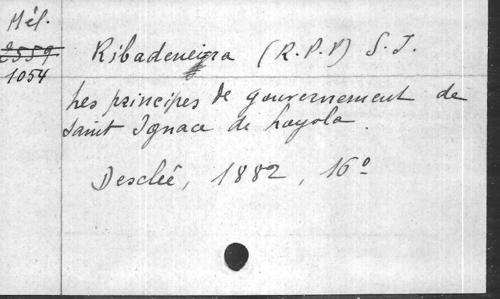 Mél.
2559
1054
Ribadeneyra (R.P.P) S.J.
Les principes de gouvernement de
Saint Ignace de Loyola.
Desclée, 1882, 16°